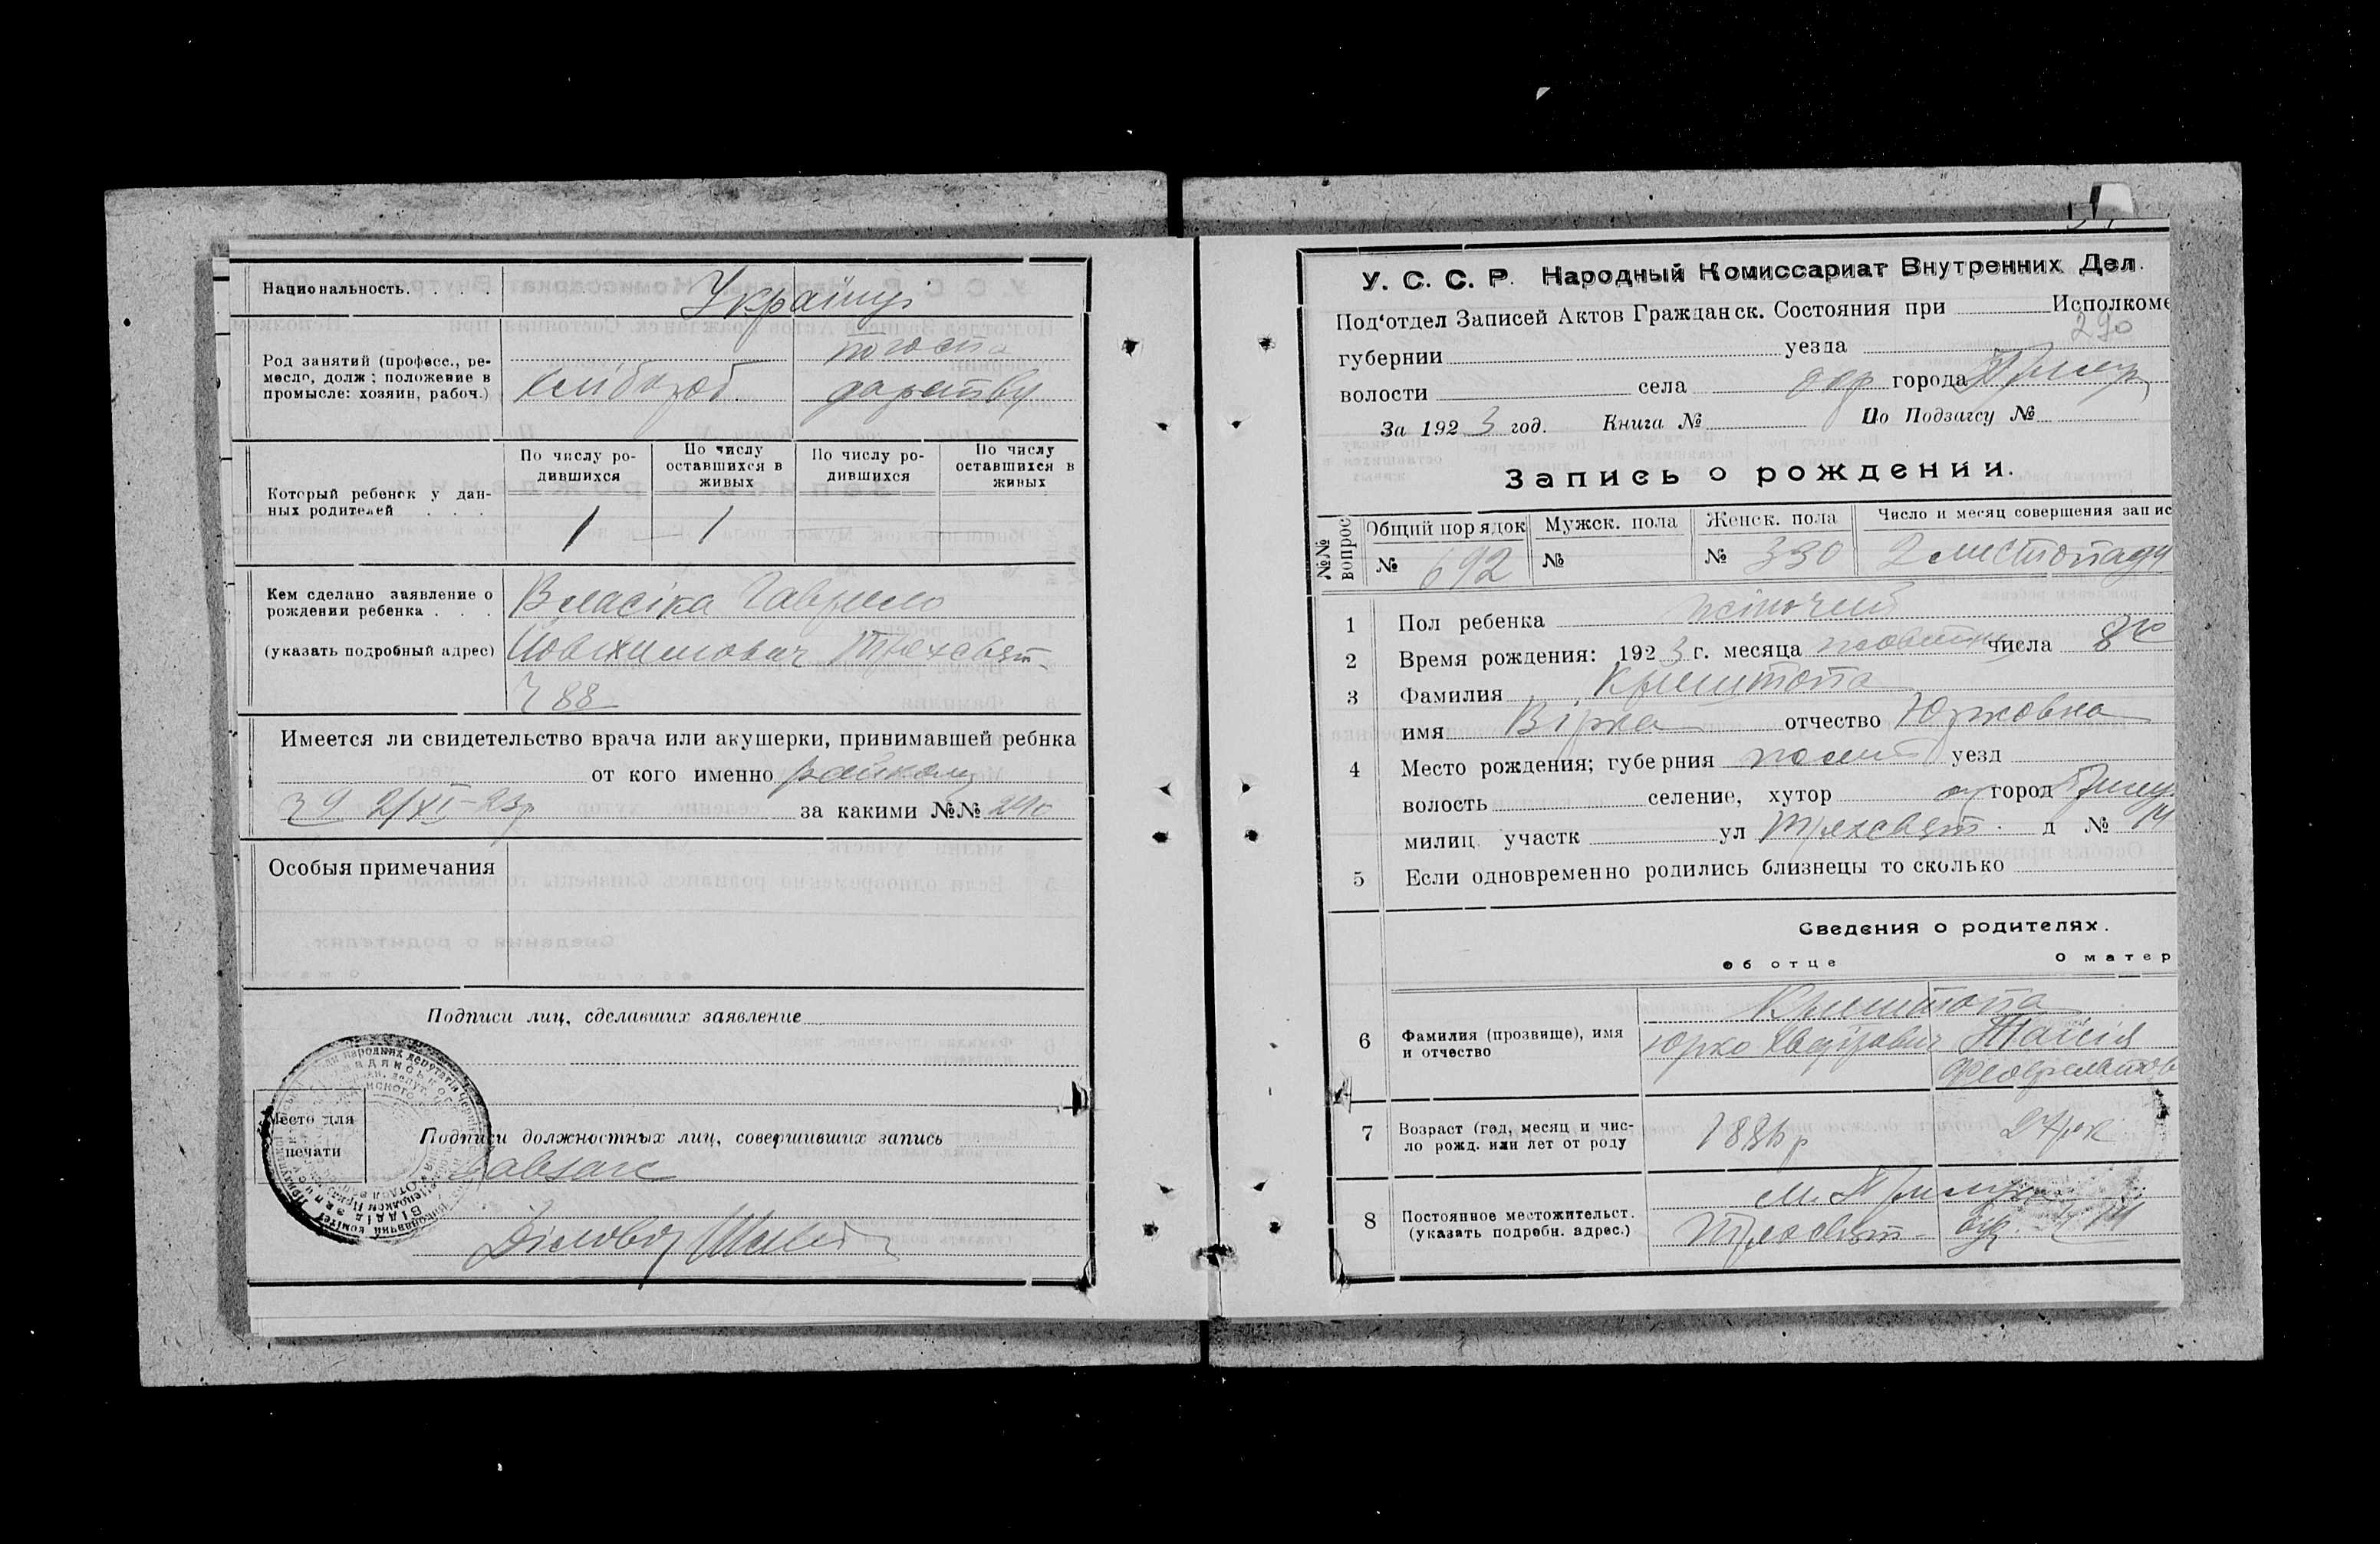 Национальность. . . . Українці
Род занятий (професс., ре-
месло, долж; положение в
промысле: хозяин, рабоч.)
хлібороб. господарству
Который ребенок у дан-
ных родителей . . .
По числу ро-
дившихся
По числу
оставшихся в
живых
По числу ро-
дившихся
По числу
оставшихся в
живых
1 1
Кем сделано заявление о
рождении ребенка . . .
(указать подробный адрес)
Власіка Гаврило
Йовхимович Трехсвят.
88
Имеется ли свидетельство врача или акушерки, принимавшей ребнка
от кого именно райкому
2/XI-23р за какими №№ 290
Особыя примечания
Подписи лиц, сделавших заявление
Место для
печати
Подписи должностных лиц, совершивших запись
Завзагс
Діловод
У. С. С. Р. Народный Комиссариат Внутренних Дел.
Под‘отдел Записей Актов Гражданск. Состояния при Исполкоме
290
губернии уезда
волости села города
За 1923 год. Книга № По Подзагсу №
Запись о рождении.
№№
вопрос
Общий порядок Мужск. пола Женск. пола Число и месяц совершения запис
№ 692 № № 330 2 листопаду
1 Пол ребенка жіночий
2 Время рождения: 1923 г. месяца жовтня числа 8го
3 Фамилия Криштопа
имя Вірка отчество Юрковна
4 Место рождения; губерния полт уезд
волость селение, хутор город
милиц. участк ул Трехсвят. д № 14
5 Если одновременно родились близнецы то сколько
Сведения о родителях.
об отце о матер
6 Фамилия (прозвище), имя
и отчество
Криштопа
Юрко Таїсія
7 Возраст (год, месяц и чис-
ло рожд. или лет от роду
27 рік
8 Постоянное местожительст.
(указать подробн. адрес.)
м. Прилука
Трехсвят. вул. 14